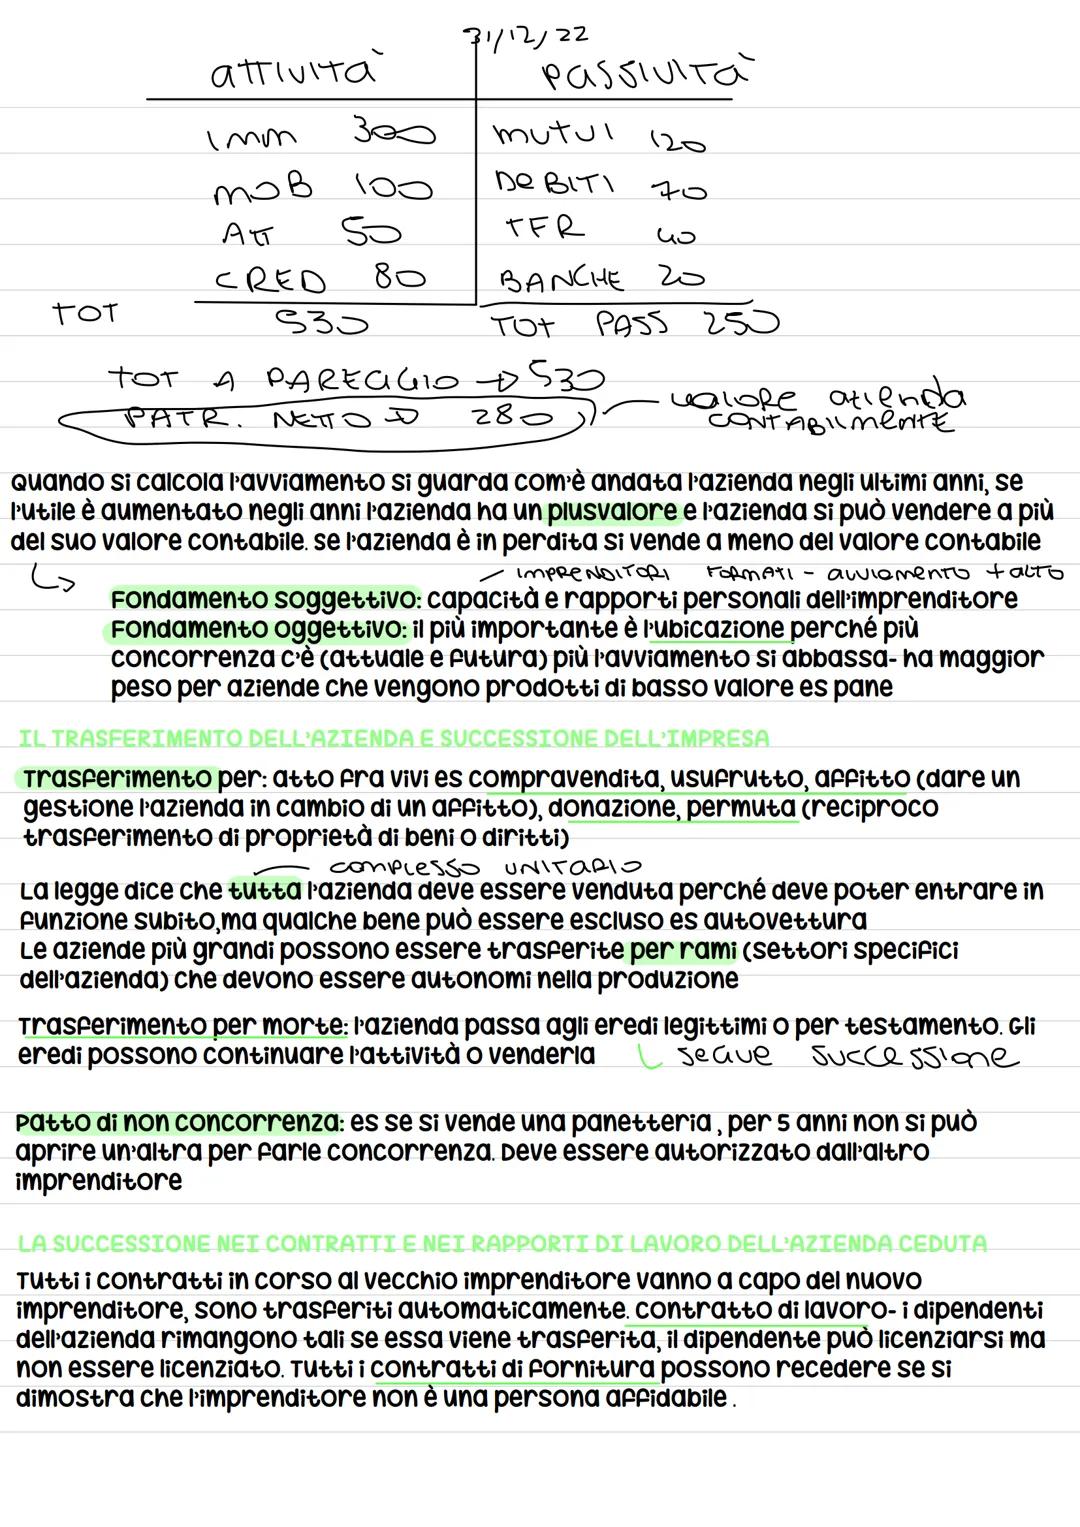 31/12/22
attività passività
imm 300 mutui 120
MOB 100 DEBITI 70
ATT 50 TFR 40
CRED 80 BANCHE 20
TOT 530 TOT PASS 250
TOT A PAREGGIO → 530
PATR. NETTO → 280 valore azienda
CONTABILMENTE
Quando si calcola l'avviamento si guarda com'è andata l'azienda negli ultimi anni, se
l'utile è aumentato negli anni l'azienda ha un plusvalore e l'azienda si può vendere a più
del suo valore contabile. se l'azienda è in perdita si vende a meno del valore contabile
IMPRENDITORI FORMATI - avviamento + alto
Fondamento soggettivo: capacità e rapporti personali dell'imprenditore
Fondamento oggettivo: il più importante è l'ubicazione perché più
concorrenza c'è (attuale e futura) più l'avviamento si abbassa- ha maggior
peso per aziende che vengono prodotti di basso valore es pane
IL TRASFERIMENTO DELL'AZIENDA E SUCCESSIONE DELL'IMPRESA
Trasferimento per: atto fra vivi es compravendita, usufrutto, affitto (dare un
gestione l'azienda in cambio di un affitto), donazione, permuta (reciproco
trasferimento di proprietà di beni o diritti)
complesso unitario
La legge dice che tutta l'azienda deve essere venduta perché deve poter entrare in
funzione subito,ma qualche bene può essere escluso es autovettura
Le aziende più grandi possono essere trasferite per rami (settori specifici
dell'azienda) che devono essere autonomi nella produzione
Trasferimento per morte: l'azienda passa agli eredi legittimi o per testamento. Gli
eredi possono continuare l'attività o venderla segue successione
Patto di non concorrenza: es se si vende una panetteria , per 5 anni non si può
aprire un'altra per farle concorrenza. Deve essere autorizzato dall'altro
imprenditore
LA SUCCESSIONE NEI CONTRATTI E NEI RAPPORTI DI LAVORO DELL'AZIENDA CEDUTA
Tutti i contratti in corso al vecchio imprenditore vanno a capo del nuovo
imprenditore, sono trasferiti automaticamente. contratto di lavoro- i dipendenti
dell'azienda rimangono tali se essa viene trasferita, il dipendente può licenziarsi ma
non essere licenziato. Tutti i contratti di fornitura possono recedere se si
dimostra che l'imprenditore non è una persona affidabile .